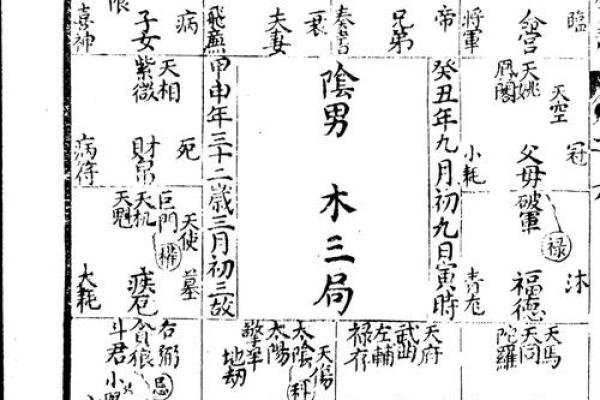 限
喜神
子女
病
飛廉
夫妻
衰
奏書
兄弟
帝
將軍
命宮
臨
癸丑年九月初九日寅時
陰男
木三局
甲申年三十二歲三月初三故
天姚
鳳閣
天空
父母
冠
小耗
破軍
祿
福德
沐
青龙
天相
紫微
財帛
死
病符
巨門
天机
天魁
權
天使
疾厄
墓
大耗
天馬
天同
陀羅
天府
武曲
左輔
祿存
天傷
太陰
太陽
擎羊
地劫
科
右弼
貪狼
斗君
忌
小